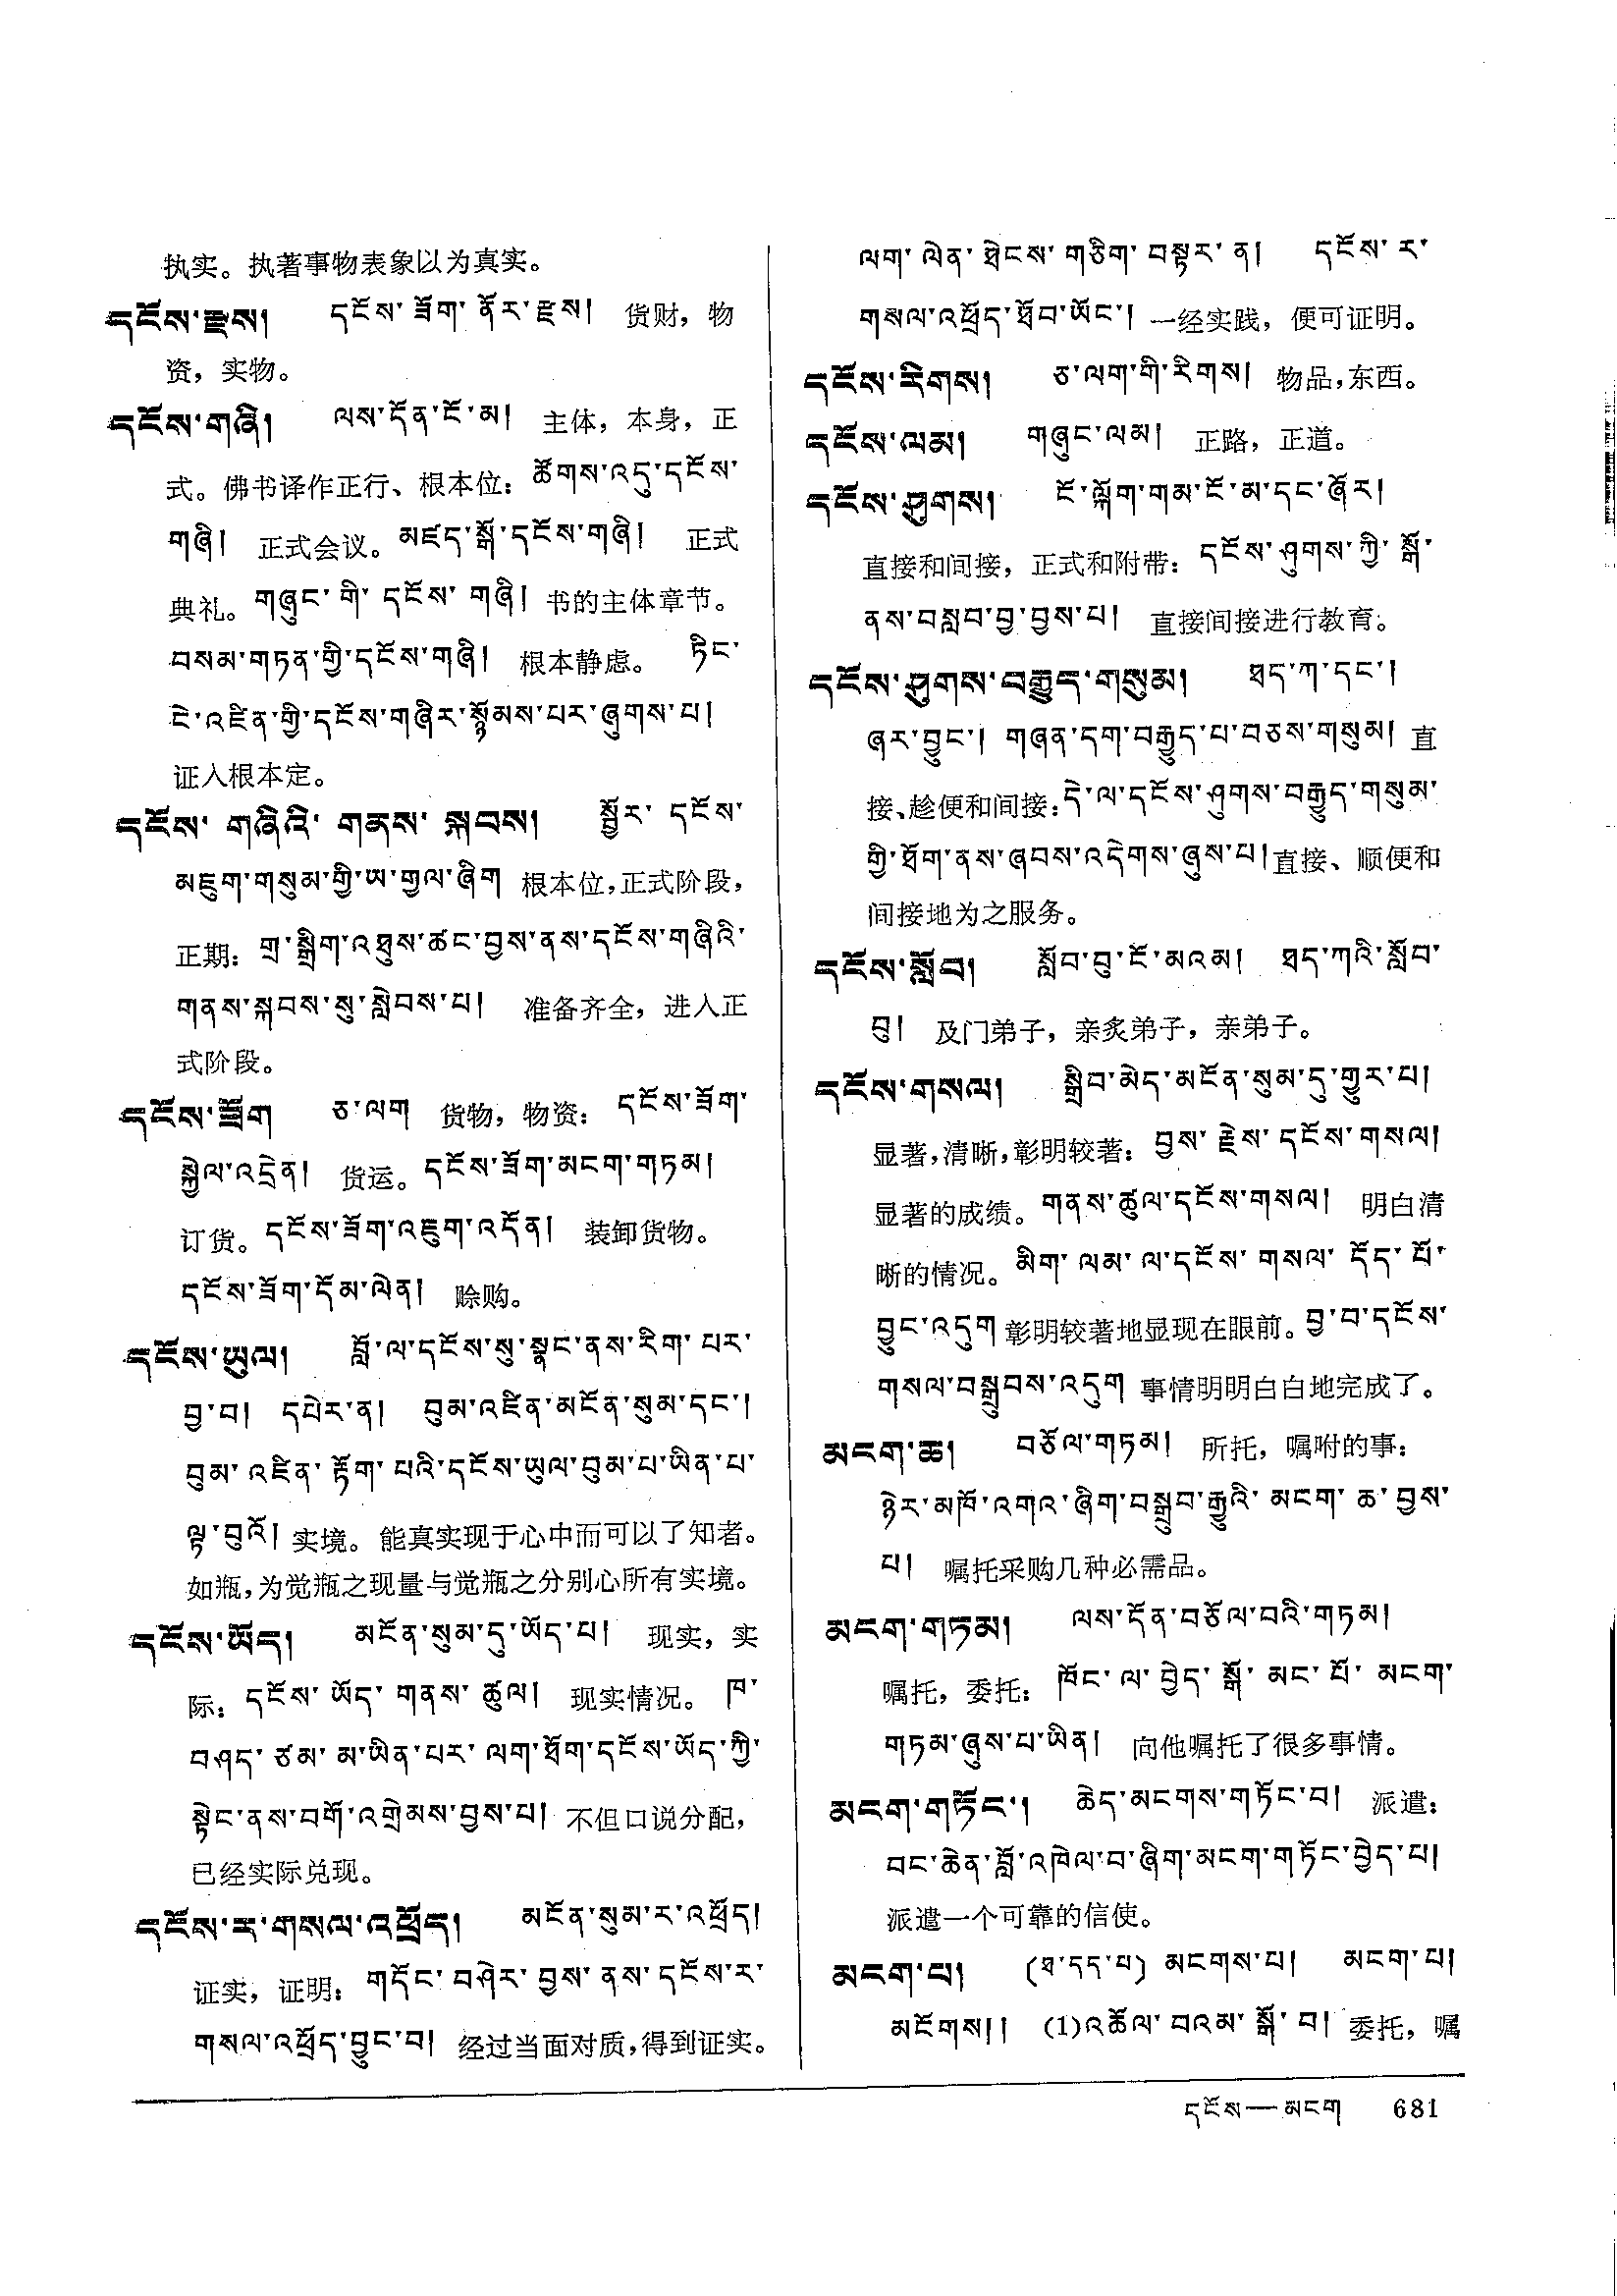 执实。执著事物表象以为真实。
དངོས་རྫས། དངོས་ཟོག་ནོར་རྫས། 货财，物
资，实物。
དངོས་གཞི། ལས་དོན་ངོ་མ། 主体，本身，正
式。佛书译作正行、根本位：ཚོགས་འདུ་དངོས་
གཞི། 正式会议。མཛད་སྒོ་དངོས་གཞི། 正式
典礼。གཞུང་གི་དངོས་གཞི། 书的主体章节。
བསམ་གཏན་གྱི་དངོས་གཞི། 根本静虑。 ཏིང་
ངེ་འཛིན་གྱི་དངོས་གཞིར་སྙོམས་པར་ཞུགས་པ།
证入根本定。
དངོས་གཞིའི་གནས་སྐབས། སྦྱོར་དངོས་
མཇུག་གསུམ་གྱི་ཨ་གྱལ་ཞིག 根本位，正式阶段，
正期：གྲ་སྒྲིག་འཐུས་ཚང་བྱས་ནས་དངོས་གཞིའི་
གནས་སྐབས་སུ་སླེབས་པ། 准备齐全，进入正
式阶段。
དངོས་ཟོག ཅ་ལག 货物，物资：དངོས་ཟོག་
སྐྱེལ་འདྲེན། 货运。དངོས་ཟོག་མངག་གཏམ།
订货。དངོས་ཟོག་འཇུག་འདོན། 装卸货物。
དངོས་ཟོག་དོམ་ལེན། 赊购。
དངོས་ཡུལ། བློ་ལ་དངོས་སུ་སྣང་ནས་རིག་པར་
བྱ་བ། དཔེར་ན། བུམ་འཛིན་མངོན་སུམ་དང་།
བུམ་འཛིན་རྟོག་པའི་དངོས་ཡུལ་བུམ་པ་ཡིན་པ་
ལྟ་བུའོ། 实境。能真实现于心中而可以了知者。
如瓶，为觉瓶之现量与觉瓶之分别心所有实境。
དངོས་ཡོད། མངོན་སུམ་དུ་ཡོད་པ། 现实，实
际：དངོས་ཡོད་གནས་ཚུལ། 现实情况。 ཁ་
བཤད་ཙམ་མ་ཡིན་པར་ལག་ཐོག་དངོས་ཡོད་ཀྱི་
སྟེང་ནས་བགོ་འགྲེམས་བྱས་པ། 不但口说分配，
已经实际兑现。
དངོས་ར་གསལ་འཕྲོད། མངོན་སུམ་ར་འཕྲོད།
证实，证明：གདོང་བཤེར་བྱས་ནས་དངོས་ར་
གསལ་འཕྲོད་བྱུང་བ། 经过当面对质，得到证实。
ལག་ལེན་ཐེངས་གཅིག་བསྟར་ན། དངོས་ར་
གསལ་འཕྲོད་ཐོབ་ཡོང་། 一经实践，便可证明。
དངོས་རིགས། ཅ་ལག་གི་རིགས། 物品，东西。
དངོས་ལམ། གཞུང་ལམ། 正路，正道。
དངོས་ཤུགས། ངོ་ལྐོག་གམ་ངོ་མ་དང་ཞོར།
直接和间接，正式和附带：དངོས་ཤུགས་ཀྱི་སྒོ་
ནས་བསླབ་བྱ་བྱས་པ། 直接间接进行教育。
དངོས་ཤུགས་བརྒྱུད་གསུམ། ཐད་ཀ་དང་།
ཞར་བྱུང་། གཞན་དག་བརྒྱུད་པ་བཅས་གསུམ། 直
接、趁便和间接：དེ་ལ་དངོས་ཤུགས་བརྒྱུད་གསུམ་
གྱི་ཐོག་ནས་ཞབས་འདེགས་ཞུས་པ། 直接、顺便和
间接地为之服务。
དངོས་སློབ། སློབ་བུ་ངོ་མའམ། ཐད་ཀའི་སློབ་
བུ། 及门弟子，亲炙弟子，亲弟子。
དངོས་གསལ། སྒྲིབ་མེད་མངོན་སུམ་དུ་གྱུར་པ།
显著，清晰，彰明较著：བྱས་རྗེས་དངོས་གསལ།
显著的成绩。གནས་ཚུལ་དངོས་གསལ། 明白清
晰的情况。མིག་ལམ་ལ་དངོས་གསལ་དོད་པོ་
བྱུང་འདུག 彰明较著地显现在眼前。བྱ་བ་དངོས་
གསལ་བསྒྲུབས་འདུག 事情明明白白地完成了。
མངག་ཆ། བཅོལ་གཏམ། 所托，嘱咐的事：
ཉེར་མཁོ་འགའ་ཞིག་བསྒྲུབ་རྒྱུའི་མངག་ཆ་བྱས་
པ། 嘱托采购几种必需品。
མངག་གཏམ། ལས་དོན་བཅོལ་བའི་གཏམ།
嘱托，委托：ཁོང་ལ་བྱེད་སྒོ་མང་པོ་མངག་
གཏམ་ཞུས་པ་ཡིན། 向他嘱托了很多事情。
མངག་གཏོང་། ཆེད་མངགས་གཏོང་བ། 派遣：
བང་ཆེན་བློ་འཁེལ་བ་ཞིག་མངག་གཏོང་བྱེད་པ།
派遣一个可靠的信使。
མངག་པ། (ཐ་དད་པ) མངགས་པ། མངག་པ།
མངོགས།། (1)འཆོལ་བའམ་སྒོ་བ། 委托，嘱
དངོས—མངག 681